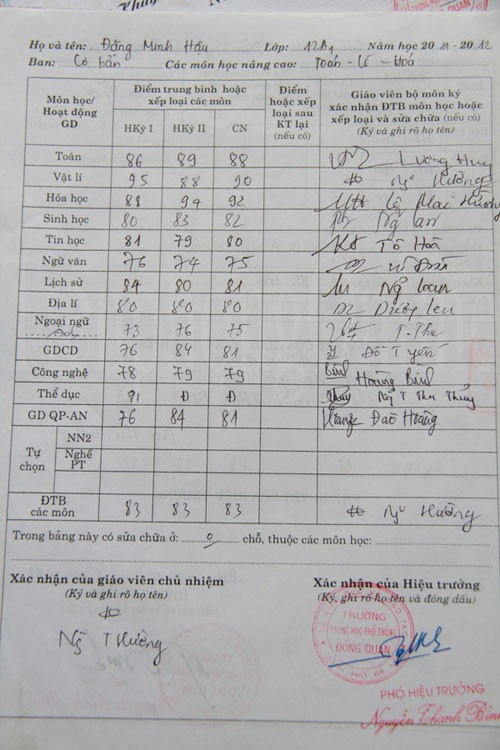 Họ và tên: Đặng Minh Hậu Lớp: 12A1 Năm học 2011-2012
Ban: Cơ bản Các môn học nâng cao: Toán - Lí - Hoá
Môn học/ Hoạt động GD Điểm trung bình hoặc xếp loại các môn Điểm hoặc xếp loại sau KT lại (nếu có) Giáo viên bộ môn ký xác nhận ĐTB môn học hoặc xếp loại và sửa chữa (nếu có) (Ký và ghi rõ họ tên)
HKỳ I HKỳ II CN
Toán 86 89 88 Lương Huy
Vật lí 95 88 90 Ngô Hường
Hóa học 88 94 92 Lê Mai Hường
Sinh học 80 83 82 Ng an
Tin học 81 79 80 Tô Hoà
Ngữ văn 76 74 75
Lịch sử 84 80 81 Ng loan
Địa lí 80 80 80 Dương
Ngoại ngữ 73 76 75 T. Thu
GDCD 76 84 81 Đỗ T Yến
Công nghệ 78 79 79 Hoàng Bình
Thể dục Đ Đ Ng T Thu Thủy
GD QP-AN 76 84 81 Đào Hoàng
Tự chọn NN2
Nghề PT
ĐTB các môn 83 83 83 Hường
Trong bảng này có sửa chữa ở: 0 chỗ, thuộc các môn học:
Xác nhận của giáo viên chủ nhiệm Xác nhận của Hiệu trưởng
(Ký và ghi rõ họ tên) (Ký, ghi rõ họ tên và đóng dấu)
TRƯỜNG
TRUNG HỌC PHỔ THÔNG
ĐỒNG QUAN
Ng T Hường
PHÓ HIỆU TRƯỞNG
Nguyễn Thanh Bình